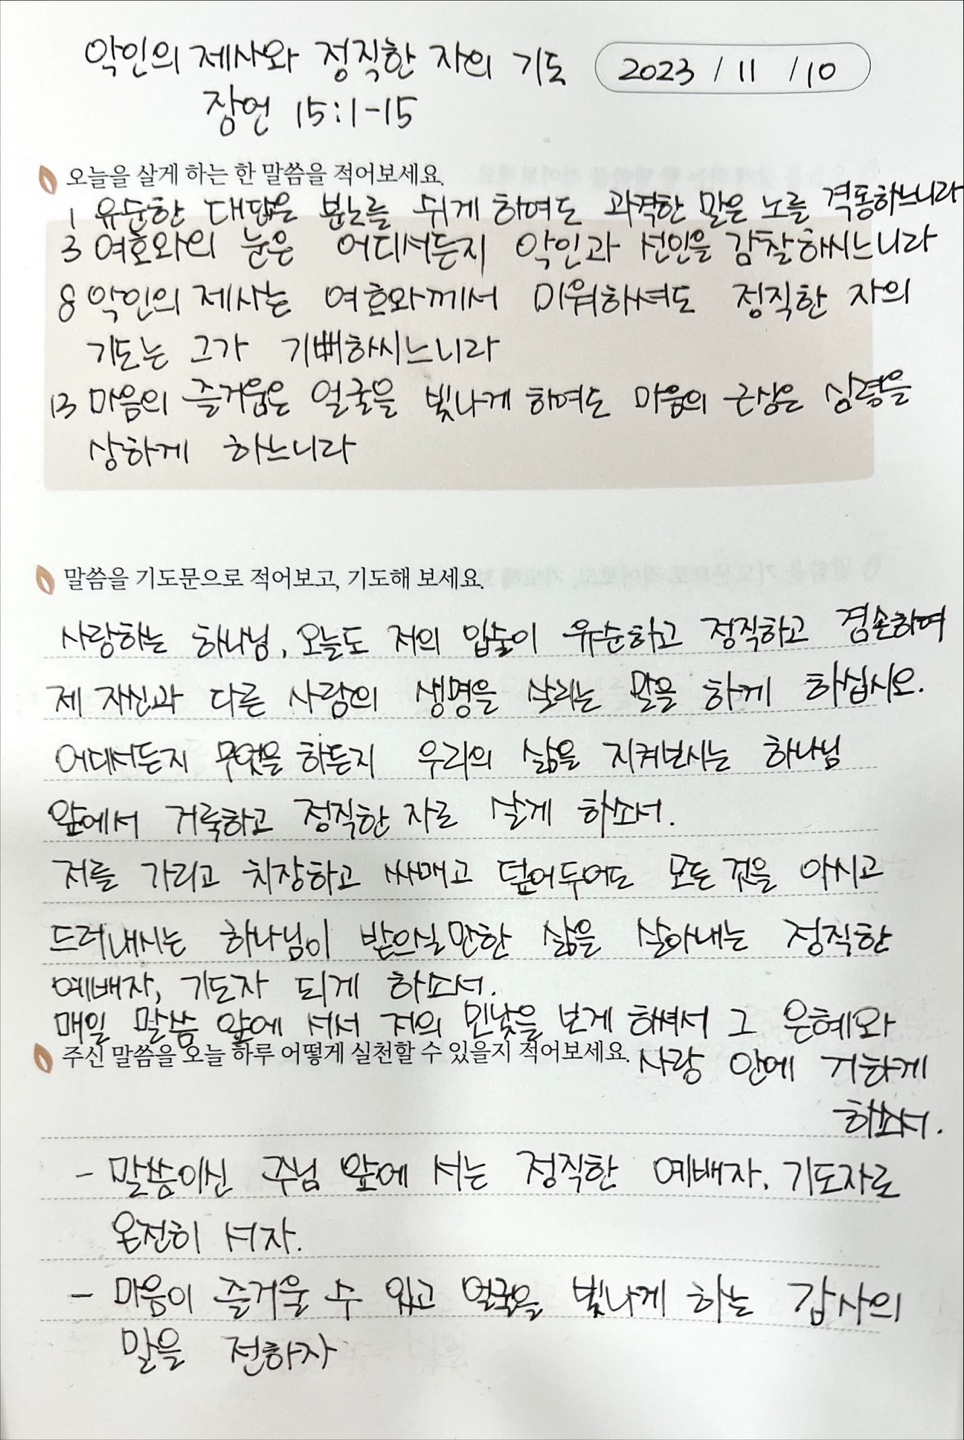 악인의 제사와 정직한 자의 기도
2023 / 11 / 10
잠언 15:1-15
오늘을 살게 하는 한 말씀을 적어보세요.
1 유순한 대답은 분노를 쉬게 하여도 과격한 말은 노를 격동하느니라
3 여호와의 눈은 어디서든지 악인과 선인을 감찰하시느니라
8 악인의 제사는 여호와께서 미워하셔도 정직한 자의
기도는 그가 기뻐하시느니라
13 마음의 즐거움은 얼굴을 빛나게 하여도 마음의 근심은 심령을
상하게 하느니라
말씀을 기도문으로 적어보고, 기도해 보세요.
사랑하는 하나님, 오늘도 저의 입술이 유순하고 정직하고 겸손하여
제 자신과 다른 사람의 생명을 살리는 말을 하게 하십시오.
어데서든지 무엇을 하든지 우리의 삶을 지켜보시는 하나님
앞에서 거룩하고 정직한 자로 살게 하소서.
저를 가리고 치장하고 싸매고 덮어두어도 모든 것을 아시고
드러내시는 하나님이 받으실만한 삶을 살아내는 정직한
예배자, 기도자 되게 하소서.
매일 말씀 앞에 서서 저의 민낯을 보게 하셔서 그 은혜와
사랑 안에 거하게
하소서.
주신 말씀을 오늘 하루 어떻게 실천할 수 있을지 적어보세요.
- 말씀이신 주님 앞에 서는 정직한 예배자, 기도자로
온전히 서자.
- 마음이 즐거울 수 있고 얼굴을 빛나게 하는 감사의
말을 전하자